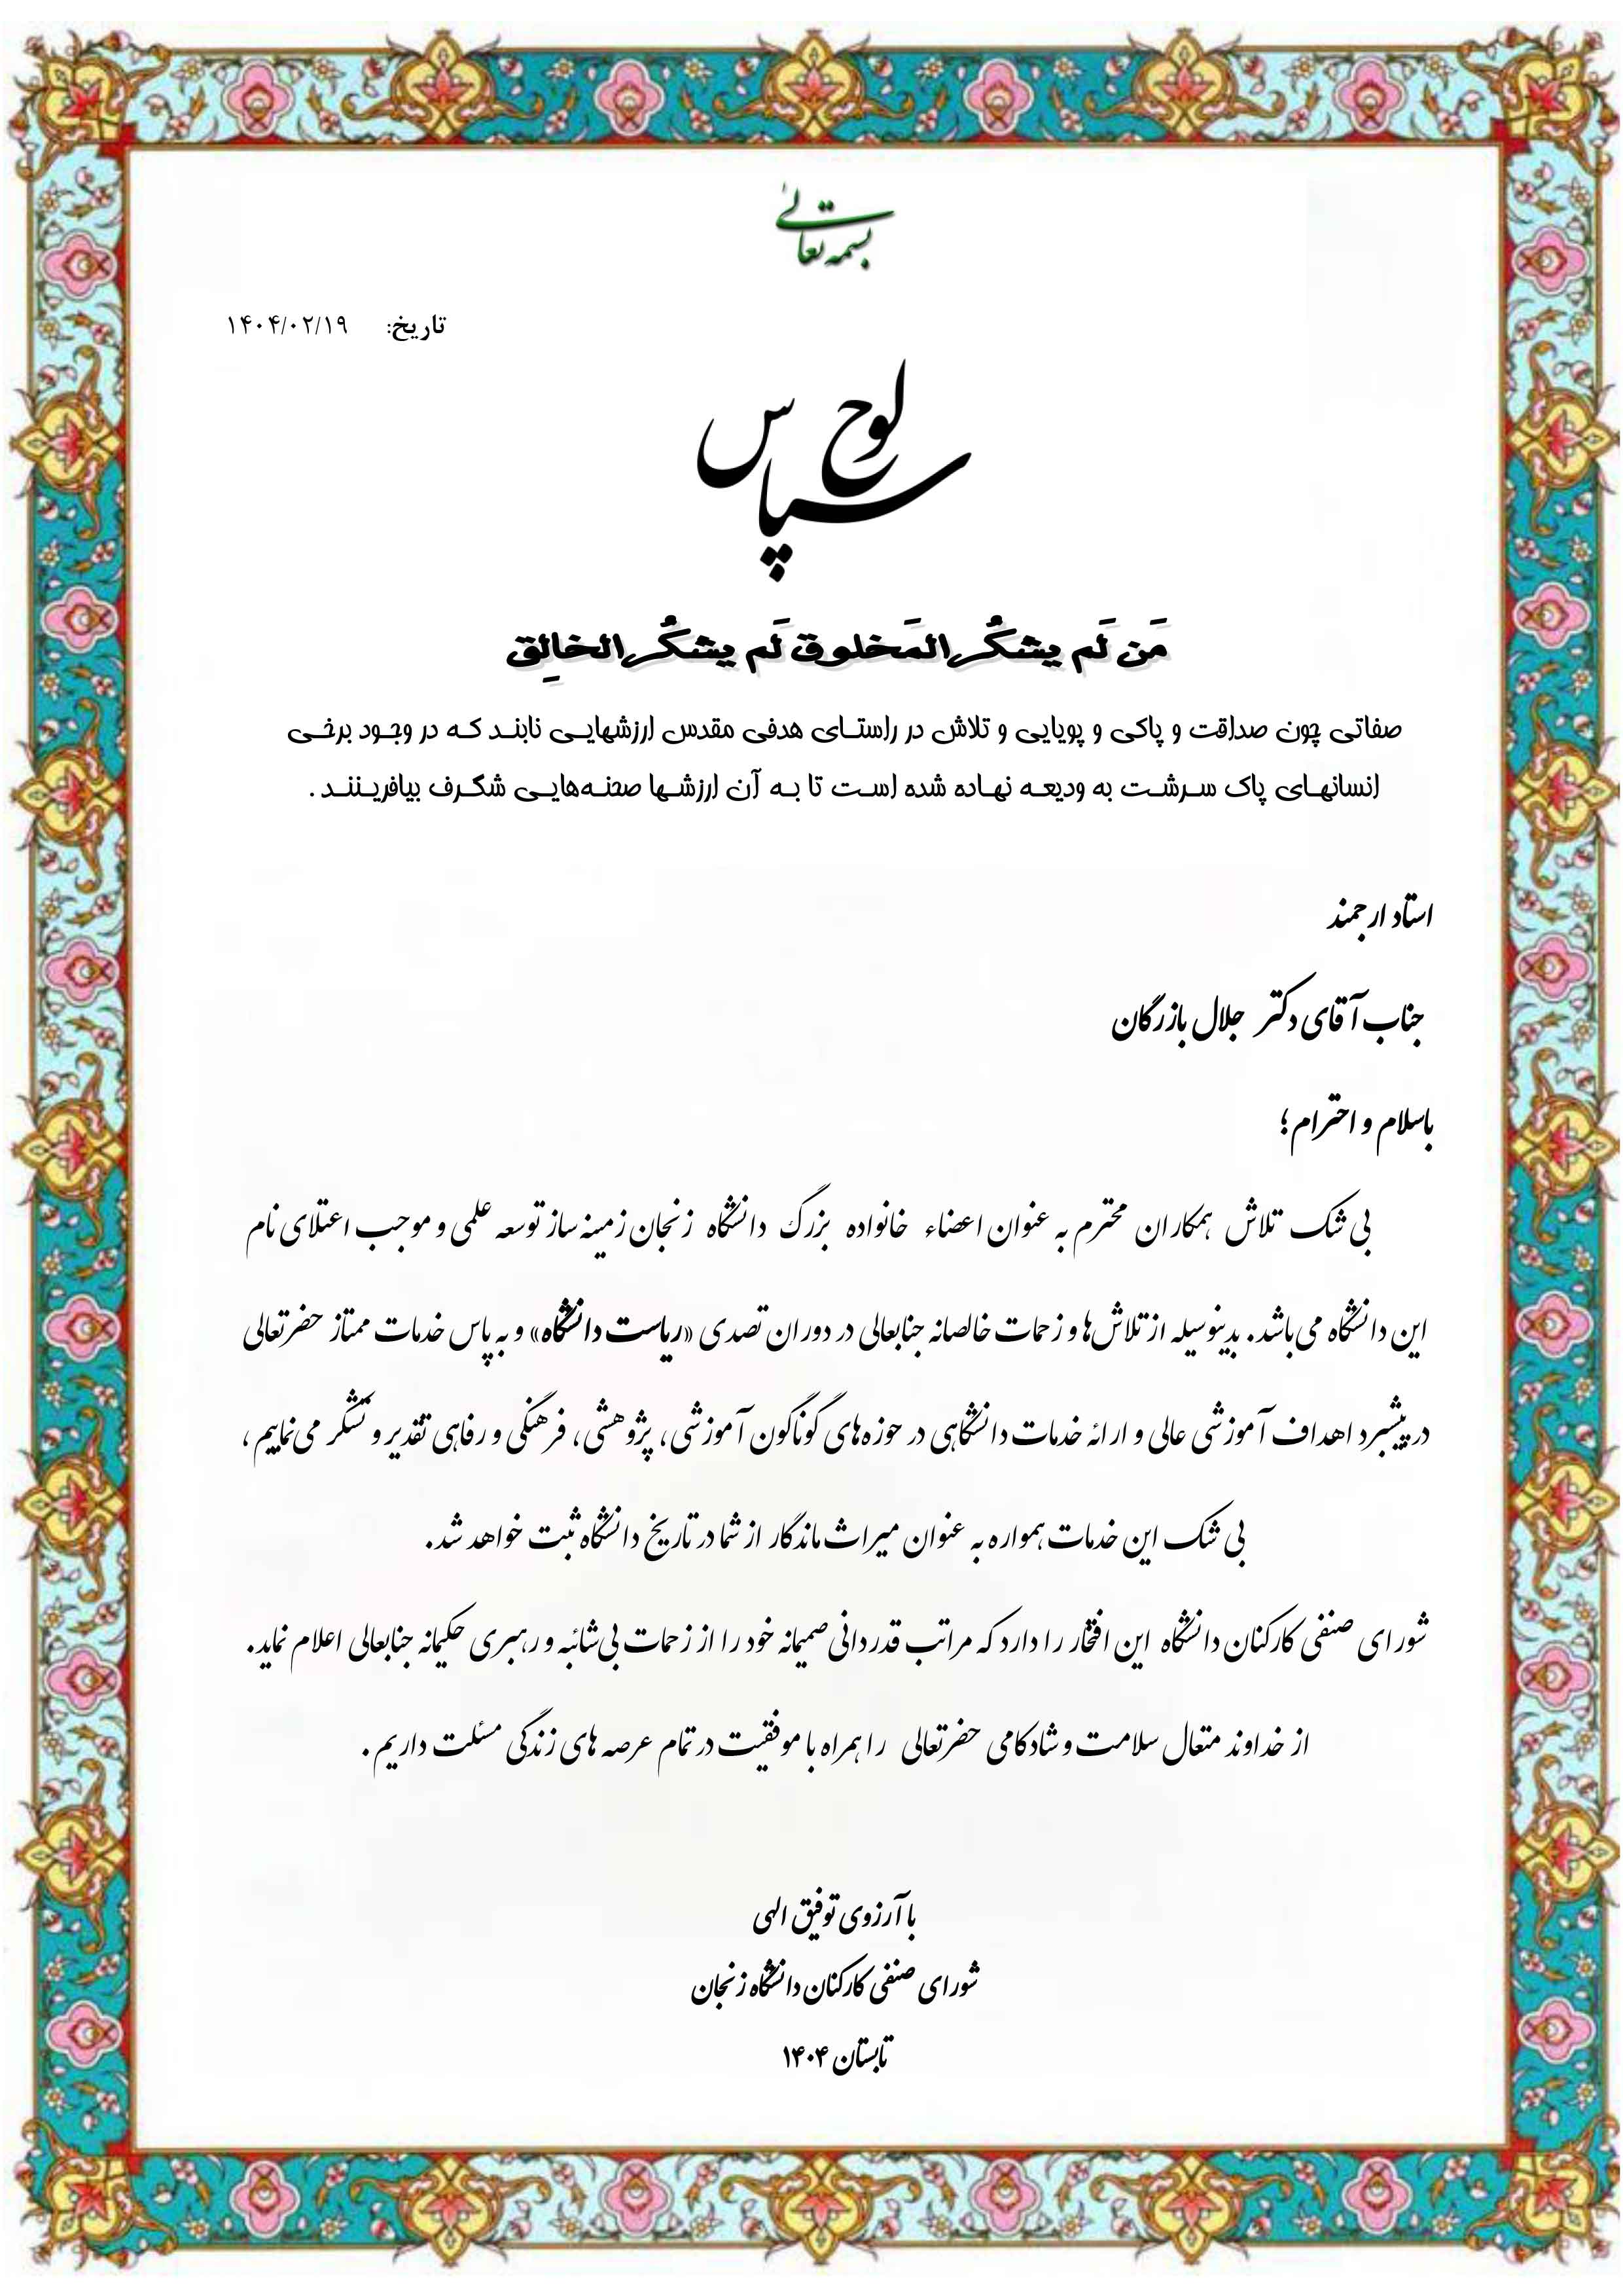 بسمه تعالی
تاریخ: ۱۴۰۴/۰۲/۱۹
لوح سپاس
مَن لَم يشكُر المَخلوق لَم يشكُر الخالِق
صفاتی چون صداقت و پاکی و پویایی و تلاش در راستای هدفی مقدس ارزشهایی نابند که در وجود برخی
انسانهای پاک سرشت به ودیعه نهاده شده است تا به آن ارزشها صحنه‌هایی شگرف بیافرینند .
استاد ارجمند
جناب آقای دکتر جلال بازرگان
باسلام و احترام؛
بی شک تلاش همکاران محترم به عنوان اعضاء خانواده بزرگ دانشگاه زنجان زمینه ساز توسعه علمی و موجب اعتلای نام
این دانشگاه می‌باشد. بدینوسیله از تلاش‌ها و زحمات خالصانه جنابعالی در دوران تصدی «ریاست دانشگاه» و به پاس خدمات ممتاز حضرتعالی
در پیشبرد اهداف آموزشی عالی و ارائه خدمات دانشگاهی در حوزه‌های گوناگون آموزشی، پژوهشی، فرهنگی و رفاهی تقدیر و تشکر می‌نماییم ،
بی شک این خدمات همواره به عنوان میراث ماندگار از شما در تاریخ دانشگاه ثبت خواهد شد.
شورای صنفی کارکنان دانشگاه این افتخار را دارد که مراتب قدردانی صمیمانه خود را از زحمات بی‌شائبه و رهبری حکیمانه جنابعالی اعلام نماید.
از خداوند متعال سلامت و شادکامی حضرتعالی را همراه با موفقیت در تمام عرصه های زندگی مسئلت داریم .
با آرزوی توفیق الهی
شورای صنفی کارکنان دانشگاه زنجان
تابستان ۱۴۰۴